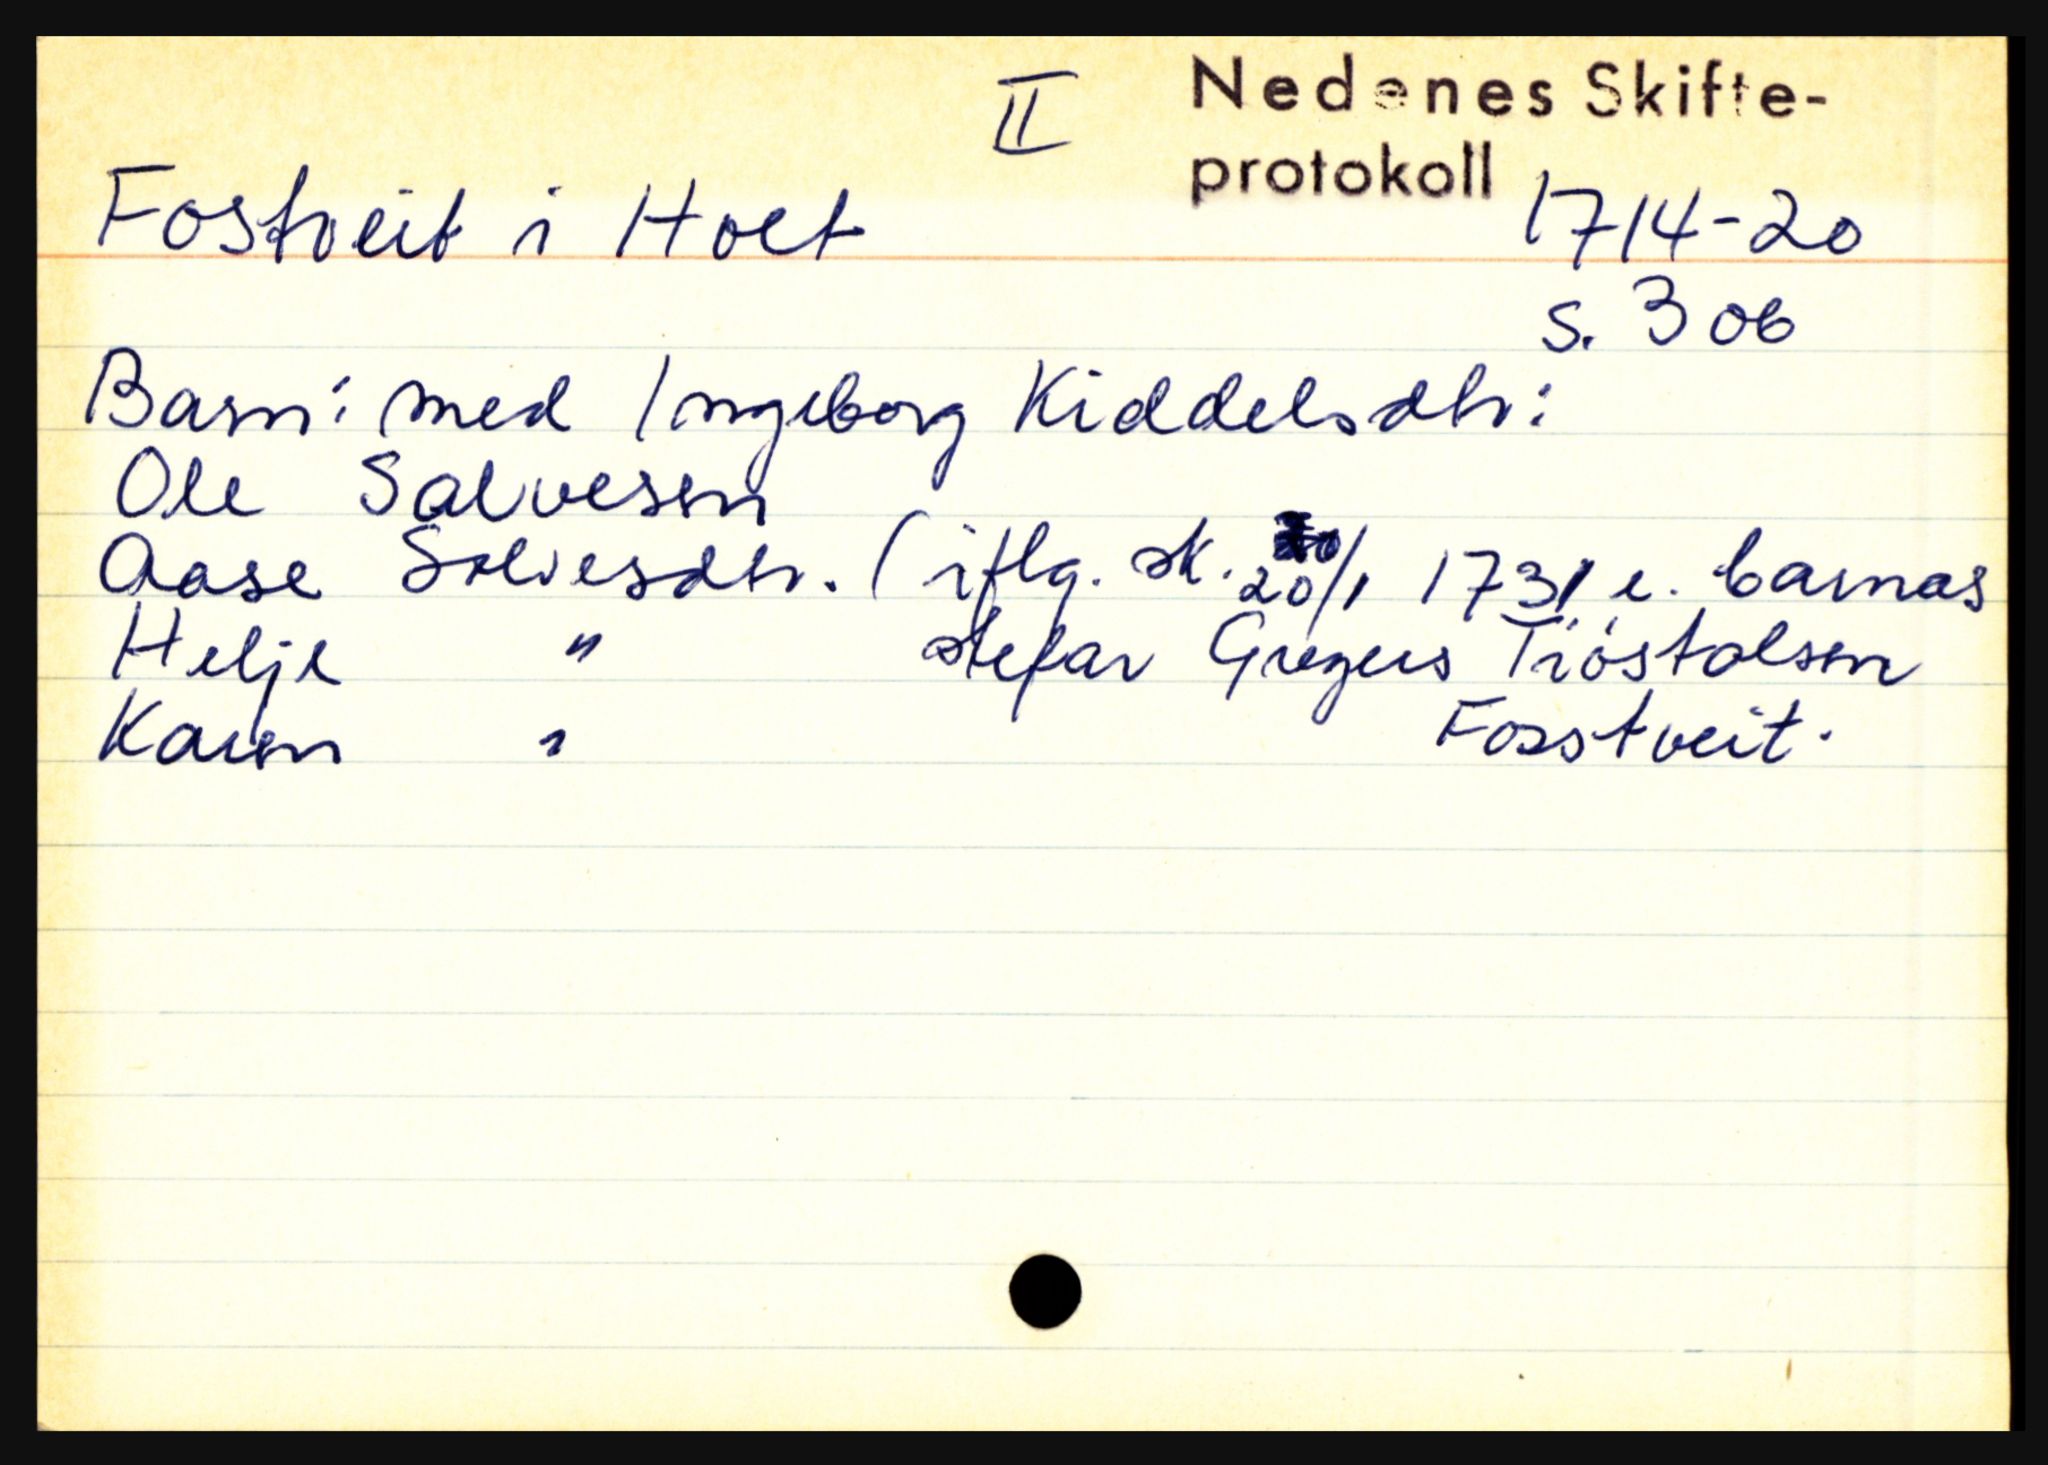 II
Nedenes Skifte-
protokoll
Fostveit i Holt
1714-20
s. 306
Barn: med Ingeborg Kiddelsdtr:
Ole Salvesen
Aase Salvesdtr. ( iflg. sk. 20/1 1731 e. barnas
Helje " stefar Gregers Tiøstolsen
Karen " Fosstveit.